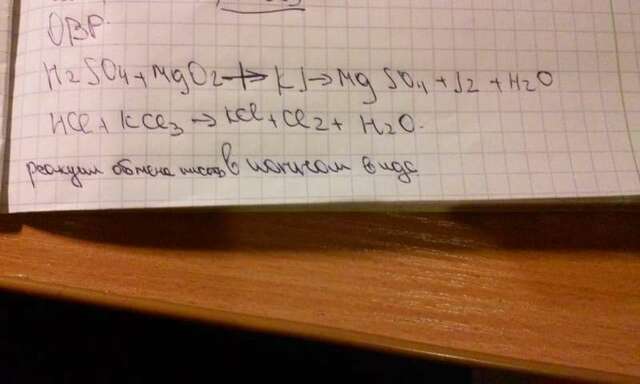 ОВР.
H2SO4 + MgO2 + KJ → MgSO4 + J2 + H2O
HCl + KCl3 → KCl + Cl2 + H2O.
реакции обмена писать в ионном виде